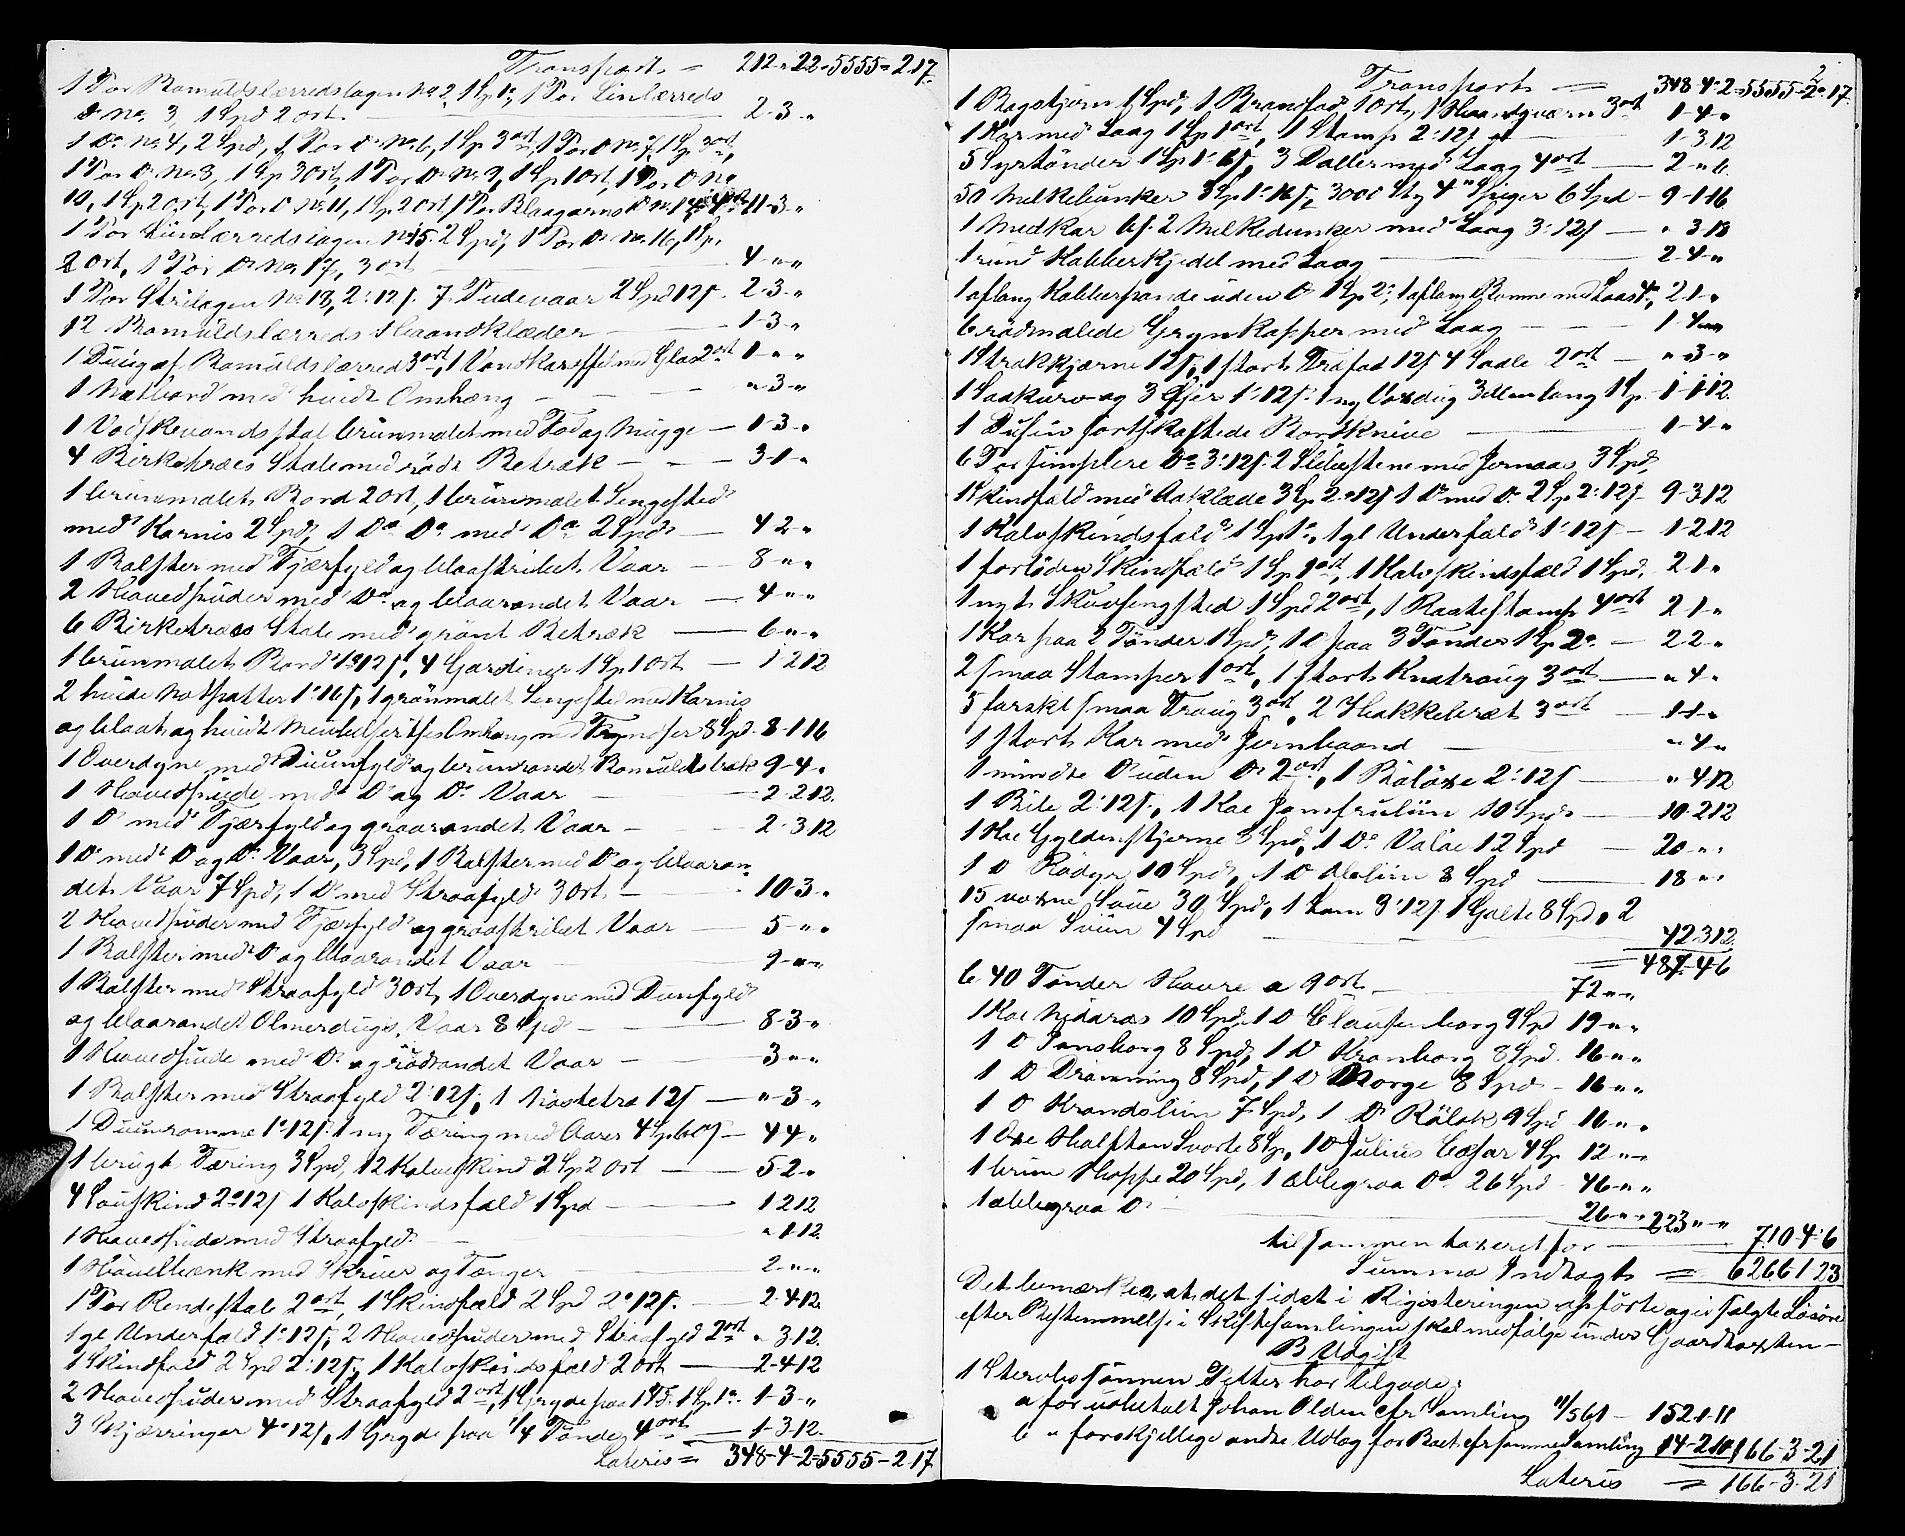 Transport = 212 " 22 = 5555 = 2.17.
1 Par Bomuldslærredslagen No 2, 1 Sp 1 ", 1 Par Linlærreds
do No. 3, 1 Spd 2 ort. — 2-3-"
1 Do No. 4, 2 Spd, 1 Par Do No. 6, 1 Sp 3 ort, 1 Par Do No 7, 1 Sp 3 ort,
1 Par Do No. 8, 1 Sp 3 ort, 1 Par Do No. 9, 1 Sp 1 ort, 1 Par Do No
10, 1 Sp 2 ort, 1 Par Do No. 11, 1 Sp 2 ort, 1 Par Blaagarns Do No. 14 11-3-"
1 Par Linlærredslagen No 15. 2 Spd, 1 Par Do No. 16, 1 Sp.
2 ort, 1 Par Do No. 17, 3 ort — 4-"-"
1 Par Strilagen No. 18, 2 : 12 s. 7 Pudevaar 2 Spd 12 s. 2-3-"
12 Bomuldslærreds Haandklæder — 1-3-"
1 Dug af Bomuldslærred 3 ort, 1 Vandkaraffel med Glas 2 ort 1-"-"
1 Natbord med hvidt Omhæng — "-3-"
1 Vadskevandsstol brunmalet med Fad og Mugge — 1-3-"
4 Birketræes Stole med rødt Betræk — 3-1-"
1 brunmalet Bord 2 ort, 1 brunmalet Sengested
med Karnis 2 Spd, 1 Do Do med Do 2 Spd — 4 2-"
1 Bolster med Fjærfyld og blaastribet Vaar — 8-"-"
2 Hovedpuder med Do og blaarandet Vaar — 4-"-"
6 Birketræes Stole med grønt Betræk — 6-"-"
1 brunmalet Bord 1 " 12 s, 4 Gardiner 1 Sp 1 ort — 1-2 12
2 hvide Natpotter 1 " 16 s, 1 grønmalet Sengested med Karnis
og blaat og hvidt Omhæng med Fryndser 8 Spd. 8-1 16
1 Overdyne med Duunfyld og brunrandet Bomulds 9-4-"
1 Hovedpude med Do og Do Vaar — 2-2 12.
1 Do med Fjærfyld og graarandet Vaar — 2-3 12
1 Do med Do og Do Vaar, 3 Spd, 1 Bolster med Do og blaaran-
det Vaar 7 Spd, 1 Do med Straafyld 3 ort — 10-3-"
2 Hovedpuder med Fjærfyld og graastribet Vaar — 5-"-"
1 Bolster med Do og blaarandet Vaar — 9-"-"
1 Bolster med Straafyld 3 ort, 1 Overdyne med Duunfyld
og blaarandet Olmerdugs Vaar 8 Spd — 8-3-"
1 Hovedpude med Do og rødrandet Vaar — 3-"-"
1 Bolster med Straafyld 2 : 12 s, 1 12 s — "-3-"
1 1 " 12 s. 1 ny Tæring med Aarer 4 Sp — 4 4-"
1 brugt Tæring 3 Spd, 12 Kalveskind 2 Sp 2 ort — 5-2-"
4 Saueskind 2 " 12 s 1 Kalvskindsfæld 1 Spd — 1 2 12
1 Hovedpude med Straafyld — "-1-12.
1 Høvelbænk med Skruer og Tænger — 2-"-"
1 Par 2 ort, 1 Skindfæld 2 Spd 2 " 12 s. — 2-4-12.
1 gl Underfæld 1 : 12 s, 2 Hovedpuder med Straafyld 2 ort " 3 12.
1 Skindfæld 2 Spd 2 : 12 s, 1 Kalvskindsfæld 2 ort — 2-4-12
2 Hovedpuder med Straafyld 2 ort, 1 Gryde paa 1-3-"
3 Kjærringer 4 " 12 s, 1 Gryde paa 1/4 Tønde 4 ort — 1-3-12.
Lateris = 348-4-2=5555-2 17.
2
Transport = 348-4-2=5555-2-17.
1 Bagstjørn 1 Spd, 1 1 ort, 1 Haandqværn 3 ort 1-4-"
1 Kar med Laag 1 Sp 1 ort, 1 Stamp 2 : 12 s — 1-3 12
5 Syrtønder 3 Daller med Laag 4 ort — 2-" 6.
50 Melkebunker 3 Sp 1 " 16 s, 3000 Stk 4 " Spiger 6 Spd — 9-1-16
1 2 Melkebunker med Laag 3 : 12 s — " 3.18
1 rund Kobberkjedel med Laag — 2-4-"
1 aflang Kobberpande uden Do 1 Sp 2 ", 1 aflang med 2-1-"
6 rødmalede Grynkopper med Laag — 1-4-"
12 s, 1 stort Træfad 12 s 4 2 ort — "-3-"
1 og 3 1 " 12 s. 1 ny Voxdug 3 Alen lang 1 Sp. 1-1-12.
1 Dusin sortskaftede Bordknive — 1-4-"
6 Par simplere Do 3 : 12 s. 2 Slibestene med Jernaas, 3 Spd,
1 Skindfæld med Aaklæde 3 Sp 2 " 12 s 1 Do med Do 2 Sp 2 : 12 s — 9-3.12
1 Kalvskindsfæld 1 Sp 1 ", 1 gl Underfæld 1 : 12 s — 1-2 12
1 forloden Skindfæld 1 Sp 1 ort, 1 Kalvskindsfæld 1 Spd, 2 1-"
1 nyt Skuvsengsted 1 Spd 2 ort, 1 4 ort 2 1-"
1 Kar paa 2 Tønder 1 Spd, 1 Do paa 3 Tønder 1 Sp 2 " — 2 2-"
2 smaa Stamper 1 ort, 1 stort Knatroug 3 ort — " 4-"
5 smaa Traug 3 ort, 2 Hakkebræt 3 ort — 1 1-"
1 stort Kar med Jernbaand — "-4-"
1 mindre Do uden Do 2 ort, 1 Baløxe 2 : 12 s — " 4 12
1 Bile 2 : 12 s, 1 Koe Jomfruliin 10 Spd — 10-2 12
1 Koe Gyldenstjerne 8 Spd, 1 Do Valae 12 Spd — 20-"-"
1 Do Rødge 10 Spd, 1 Do 8 Spd — 18-"-"
15 voxne Saue 30 Spd, 1 Lam 3 : 12 s. 1 Galte 8 Spd, 2
smaa Sviin 4 Spd — 42 3 12.
= 487-4-6
b. 40 Tønder Havre a 9 ort — 72-"-"
1 Koe Nidaros 10 Spd, 1 Do Clausenborg 9 Spd 19-"-"
1 Do Jonsborg 8 Spd, 1 Do Kronborg 8 Spd. 16-"-"
1 Do Dronning 8 Spd, 1 Do Borge 8 Spd — 16-"-"
1 Do Krandsliin 7 Spd, 1 Do Rølak 9 Spd 16-"-"
1 Oxe Halsten Svorte 8 Sp, 1 Do Julius Cæsar 4 Sp 12-"-"
1 bruun Hoppe 20 Spd, 1 ablegraa Do 26 Spd — 46-"-"
1 ablegraa Do — 26-"-" 223-"-"
tilsammen taxeret for — 710-4-6
Summa Indtægt = 6266 1 23
Det bemærkes, at det sidst i Registeringen anførte og ei solgte Løsøre
efter Bestemmelse i Skiftesamlingen skal medfølge under Gaardtaxten —
B Udgift
1 Sterbosønnen Petter har tilgode:
a for udbetalt Johan Olden cfr Samling 11/5 61 — 152-1-11
b " forskjellige andre Udlæg for Boet cfr samme Samling 14-2-10 166-3-21
Lateris = 166-3-21